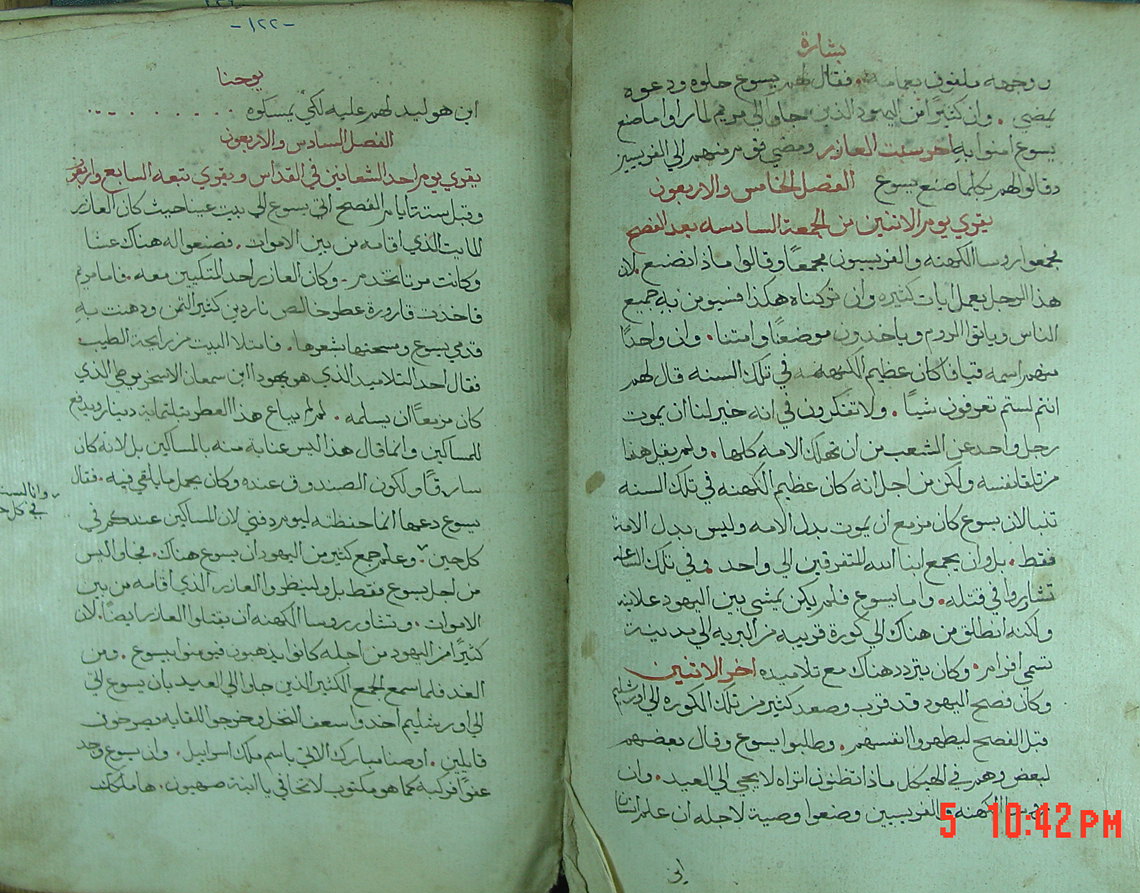 بشارة
ووجهه ملفوف بعمامة. فقال لهم يسوع حلوه ودعوه
يمضي. وان كثيرًا من اليهود الذين جاوا الي مريم لما راوا ما صنع
يسوع امنوا به اخر سبت العازر ومضي قوم منهم الي الفريسيين
وقالوا لهم بكلما صنع يسوع الفصل الخامس والاربعون
يقري يوم الاثنين من الجمعة السادسه بعد الفصح
فجمعوا روسا الكهنه والفريسيون مجمعًا وقالوا ماذا نصنع لان
هذا الرجل يعمل ايات كثيره وان تركناه هكذا فسيومن به جميع
الناس وياتي الروم وياخدون موضعنا وامتنا. وان واحدًا
منهم اسمه قيافا كان عظيم الكهنه في تلك السنه قال لهم
انتم لستم تعرفون شيا. ولا تفكرون في انه خير لنا ان يموت
رجل واحد عن الشعب من ان تهلك الامه كلها. ولم يقل هذا
من تلقا نفسه ولكن من اجل انه كان عظيم الكهنه في تلك السنه
تنبا لان يسوع كان مزمع ان يموت بدل الامه وليس بدل الامة
فقط. بل وان يجمع ابنا الله المتفرقين الي واحد. وفي تلك الساعه
تشاوروا في قتله. واما يسوع فلم يكن يمشي بين اليهود علانية
ولكنه انطلق من هناك الي كورة قريبه من البريه الي مدينة
تسمي افرام. وكان يتردد هناك مع تلاميده اخر الاتنين
وكان فصح اليهود قد قرب وصعد كثير من تلك الكوره الي اورشليم
قبل الفصح ليطهروا انفسهم. وطلبوا يسوع وقال بعضهم
لبعض وهم في الهيكل ماذا تظنون اتراه لا يجي الي العيد. وان
الكهنه والفريسيين وضعوا وصية لاجله ان علم انسان
اين
-١٢٢-
يوحنا
اين هو ليدلهم عليه لكي يمسكوه
الفصل السادس والاربعون
يقري يوم احد الشعانين في القداس ويقري تتبعه السابع واربعون
وقبل ستة ايام من الفصح اتي يسوع الي بيت عنيا حيث كان العازر
المايت الذي اقامه من بين الاموات. فصنعوا له هناك عشا
وكانت مرتا تخدم. وكان العازر احد المتكيين معه. فاما مريم
فاخدت قارورة عطر خالص ناردين كثير الثمن ودهنت به
قدمي يسوع ومسحتها بشعرها. فامتلا البيت من رايحة الطيب
فقال احد التلاميد الذي هو يهودا ابن سمعان الاسخريوطي الذي
كان مزمعًا ان يسلمه. لم لم يباع هذا العطر بثلتماية دينار ويدفع
للمساكين وانما قال هذا ليس عناية منه بالمساكين بل لانه كان
سارقًا ولكون الصندوق عنده وكان يحمل ما يلقي فيه. فقال
يسوع دعوها انما حفظته ليوم دفني لان المساكين عندكم في
كل حين. وعلم جمع كثير من اليهود ان يسوع هناك. فجاوا ليس
من اجل يسوع فقط بل ولينظروا العازر الذي اقامه من بين
الاموات. وتشاور روسا الكهنه ان يقتلوا العازر ايضًا. لان
كثيرًا من اليهود من اجله كانوا يذهبون فيومنوا بيسوع. ومن
الغد فلما سمع الجمع الكثير الذين جاوا الي العيد بان يسوع اتي
الي اورشليم اخدوا سعف النخل وخرجوا للقايه يصرخون
قايلين. اوصنا مبارك الاتي باسم ملك اسراييل. وان يسوع وجد
عفوًا فركبه كما هو مكتوب لا تخافي يا ابنة صهيون. هاملكك
واما لست
في كل ح
5 10:42 PM